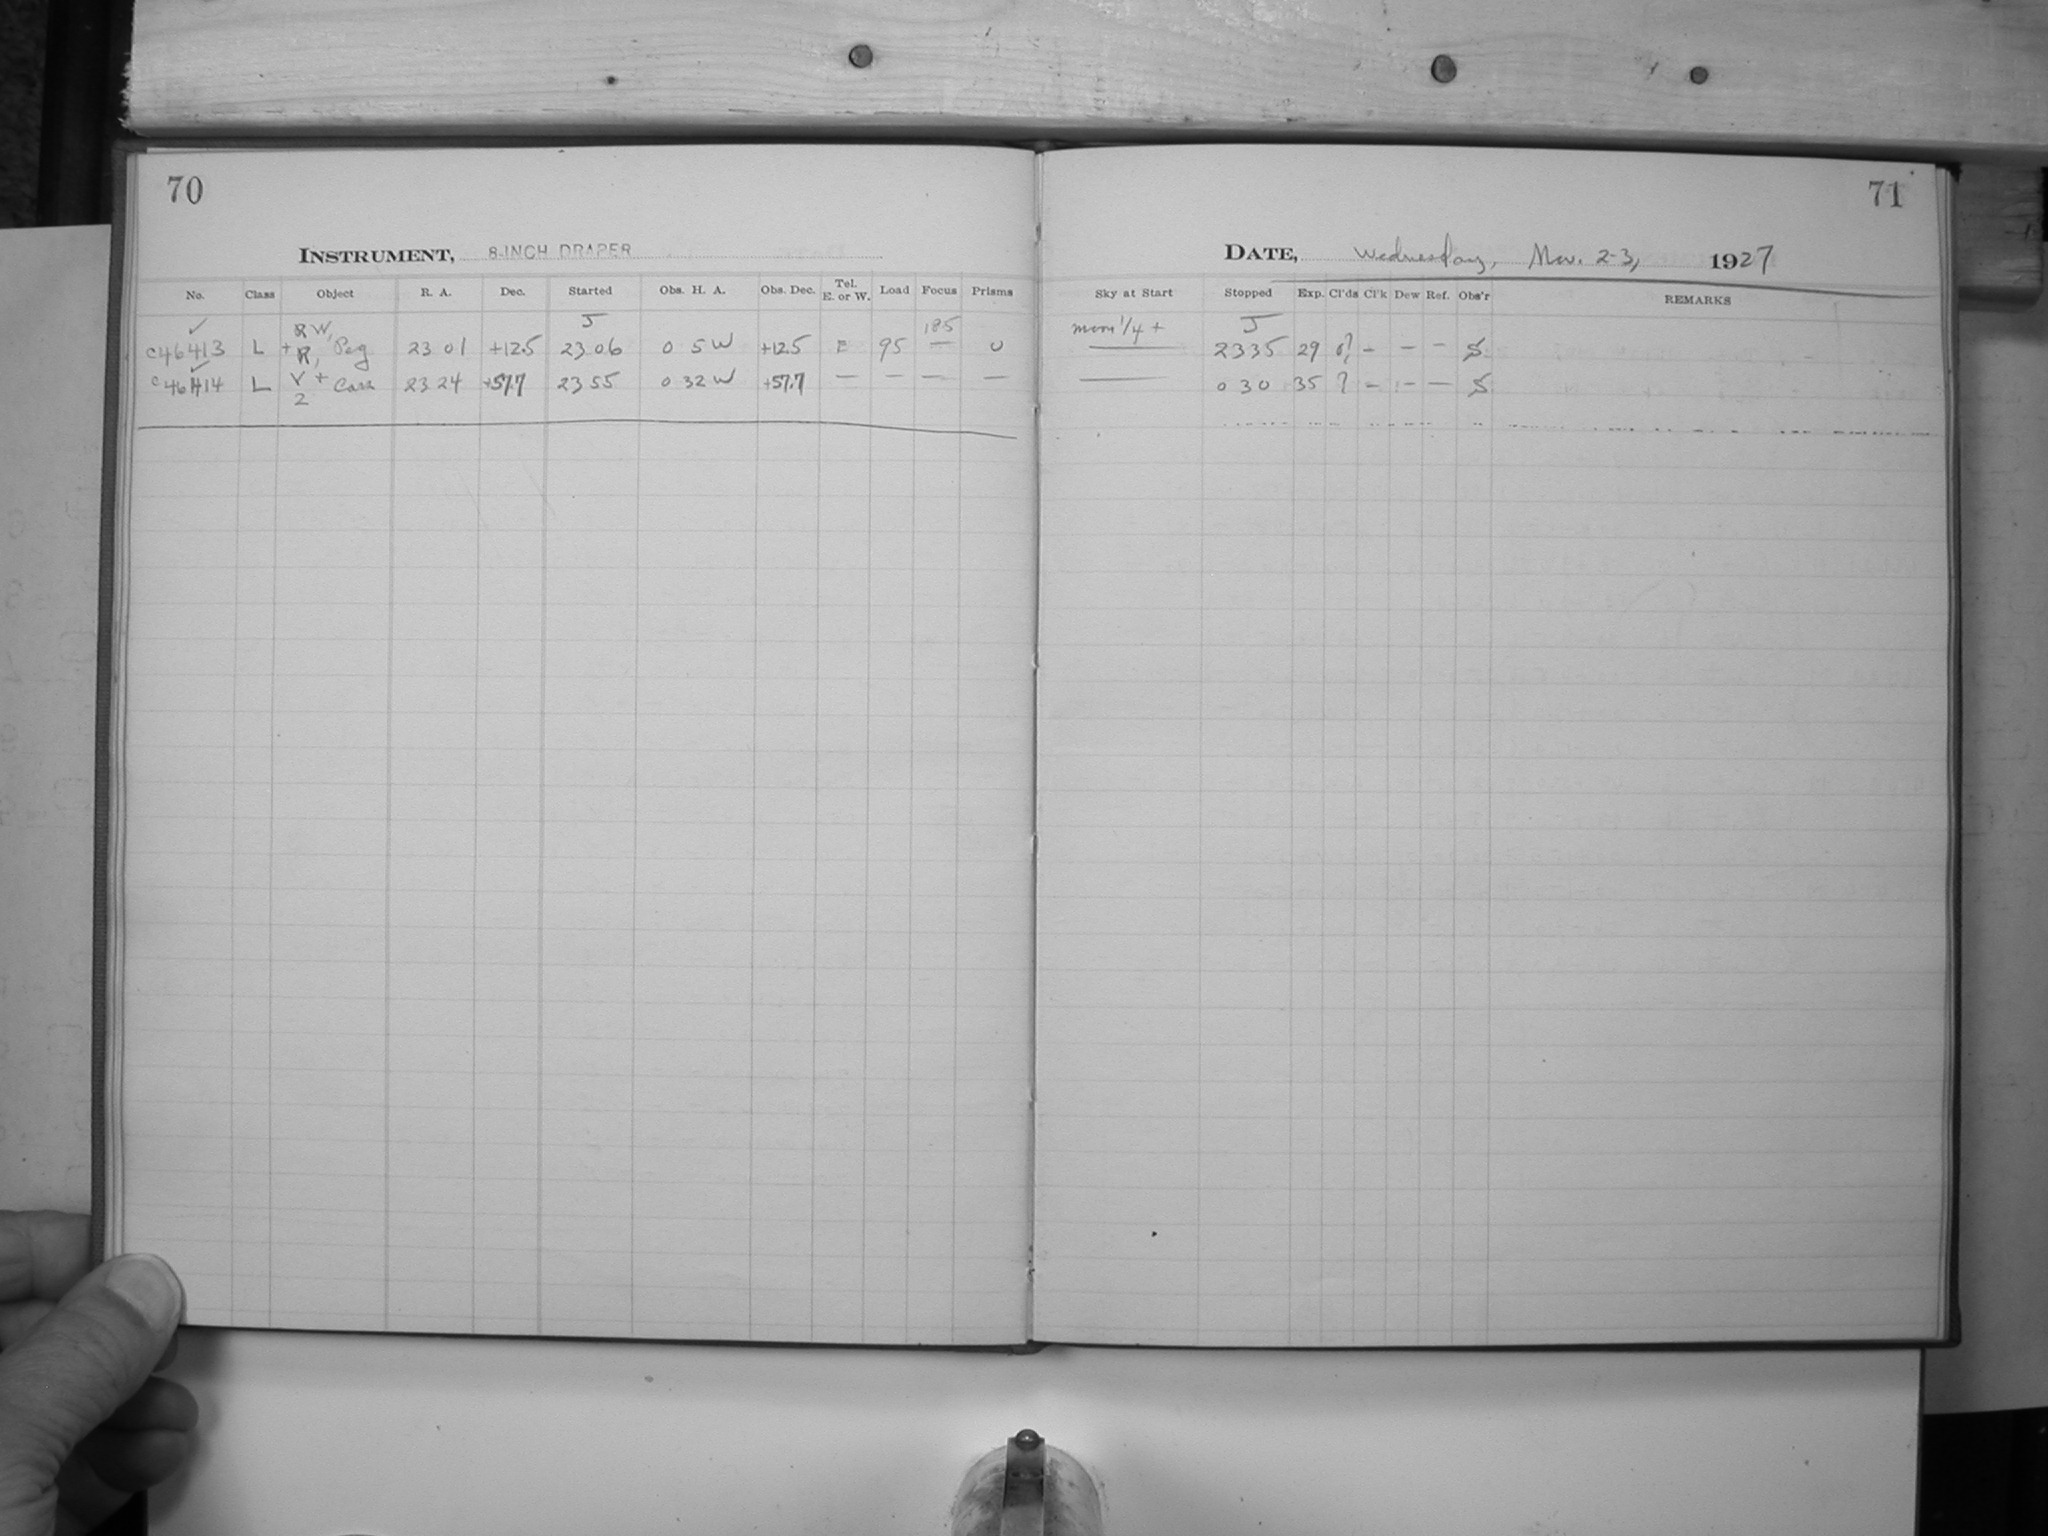 70
INSTRUMENT, 8-INCH DRAPER
No. Class Object R. A. Dec. Started Obs. H. A. Obs. Dec. Tel. E. or W. Load Focus Prisms
c46413 L RW, + R, Peg 23 01 +12.5 J 23 06 0 5 W +12.5 E 95 185 — 0
c46414 L V + Z Cass 23 24 +57.7 23 55 0 32 W +57.7 — — — —
71
DATE, Wednesday, Nov. 2-3, 1927
Sky at Start Stopped Exp. Cl'ds Cl'k Dew Ref. Obs'r REMARKS
moon 1/4 + J 23 35 29 0? — — — S
0 30 35 ? — — — S